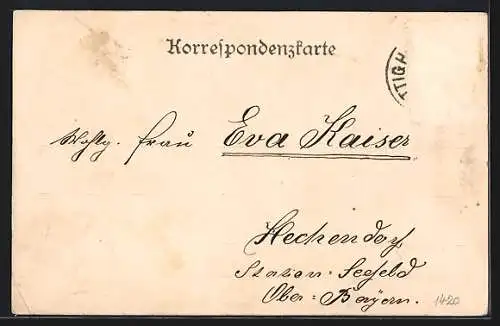 Korrespondenzkarte
ATTIGH
Wohlg. Frau Eva Kaiser
Hechendorf
Station-Seefeld
Ober=Bayern.
1420